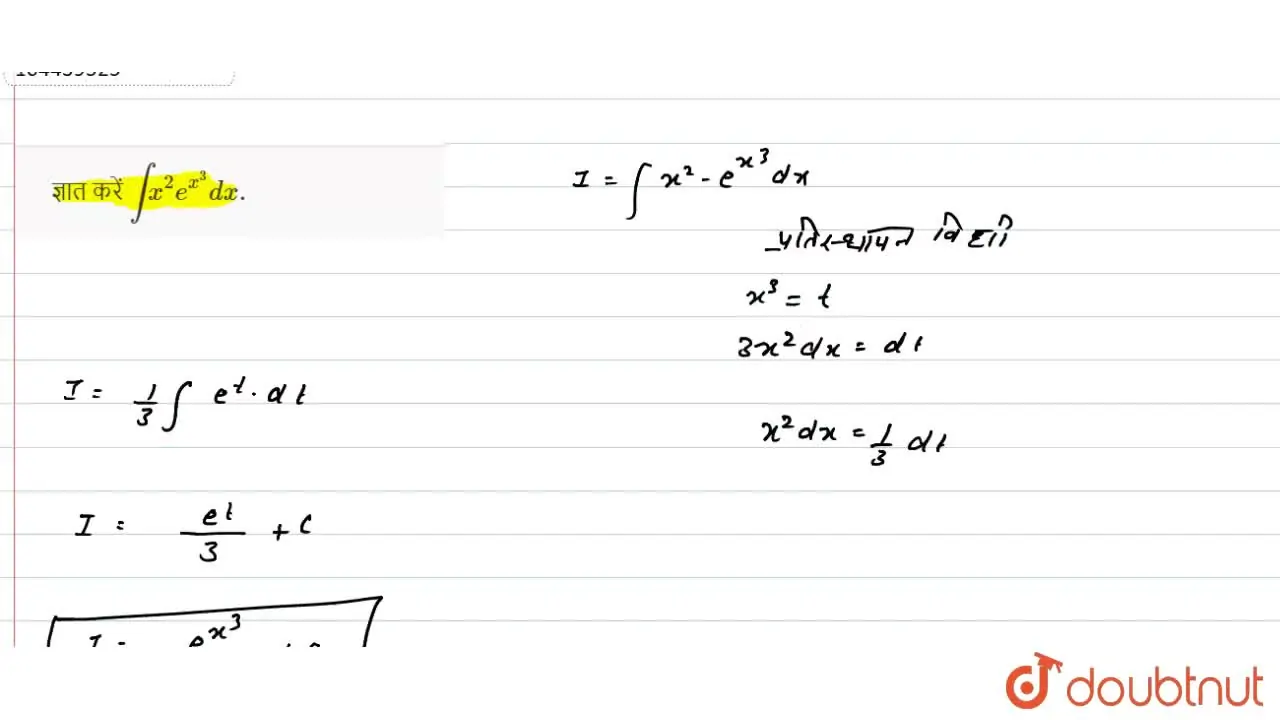 ज्ञात करें ∫x²e^{x³}dx.
I = ∫ x² - e^{x³} dx
प्रतिस्थापन विधि
x³ = t
3x² dx = dt
x² dx = 1/3 dt
I = 1/3 ∫ e^t · dt
I = e^t/3 + C
I = e^{x³}
doubtnut